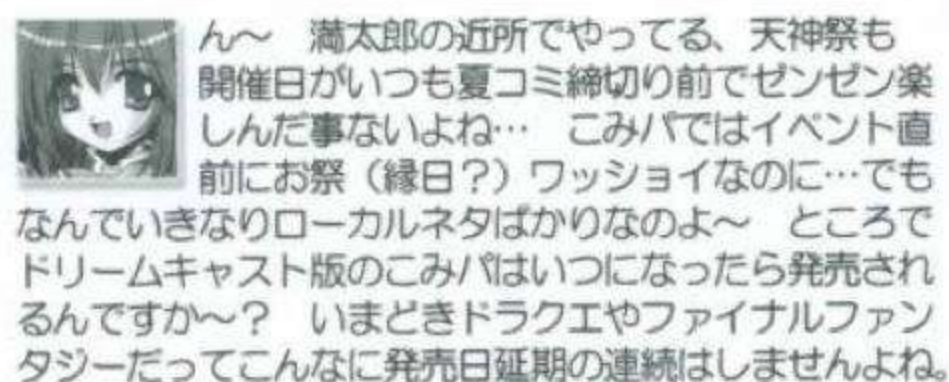 ん〜　満太郎の近所でやってる、天神祭も
開催日がいつも夏コミ締切り前でゼンゼン楽
しんだ事ないよね…　こみパではイベント直
前にお祭（縁日？）ワッショイなのに…でも
なんでいきなりローカルネタばかりなのよ〜　ところで
ドリームキャスト版のこみパはいつになったら発売され
るんですか〜？　いまどきドラクエやファイナルファン
タジーだってこんなに発売日延期の連続はしませんよね。